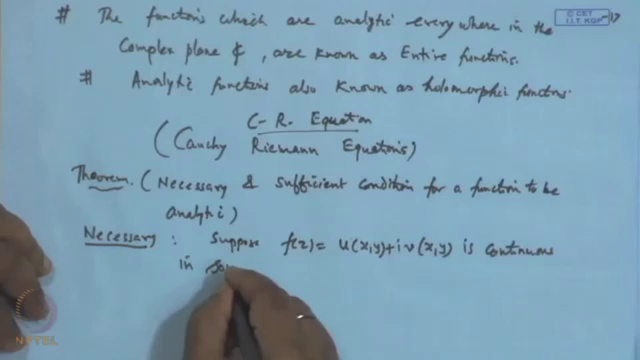 © CET
I.I.T. KGP
# The functions which are analytic everywhere in the
Complex plane ₵, are known as Entire functions.
# Analytic functions also known as holomorphic functns.
C-R. Equaton
(Cauchy Riemann Equatons)
Theorem. (Necessary & sufficient condition for a function to be
analytic)
Necessary : Suppose f(z) = u(x,y)+iv(x,y) is continuous
in
NPTEL